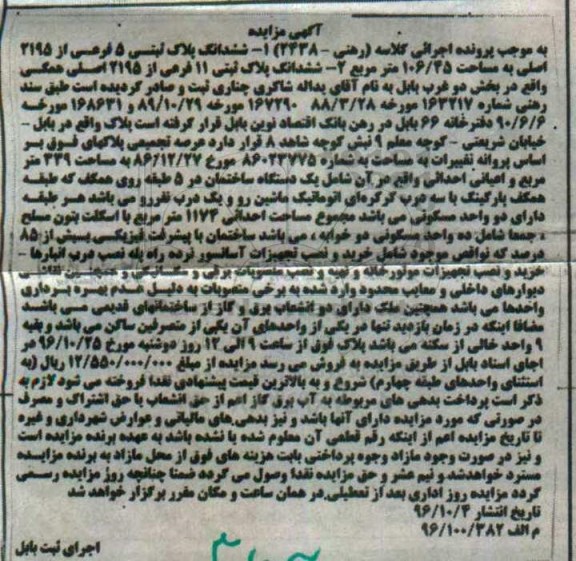 آگهی مزایده
به موجب پرونده اجرائی کلاسه (رهنی - ۲۴۳۸) ۱- ششدانگ پلاک ثبتی ۵ فرعی از ۲۱۹۵
اصلی به مساحت ۱۰۶/۴۵ متر مربع ۲- ششدانگ پلاک ثبتی ۱۱ فرعی از ۲۱۹۵ اصلی همگی
واقع در بخش دو غرب بابل به نام آقای یداله شاکری چناری ثبت و صادر گردیده است طبق سند
رهنی شماره ۱۶۳۲۱۷ مورخه ۸۸/۳/۲۸ ۱۶۷۲۹۰ مورخه ۸۹/۱۰/۲۹ و ۱۶۸۶۳۱ مورخه
۹۰/۶/۶ دفترخانه ۶۶ بابل در رهن بانک اقتصاد نوین بابل قرار گرفته است پلاک واقع در بابل -
خیابان شریعتی - کوچه معلم ۹ نبش کوچه شاهد ۸ قرار دارد عرصه تجمیعی پلاکهای فوق بر
اساس پروانه تغییرات به مساحت به شماره ۸۶۰۴۳۷۷۵ مورخ ۸۶/۱۲/۲۷ به مساحت ۳۳۹ متر
مربع و اعیانی احداثی واقع در آن شامل یک دستگاه ساختمان در ۵ طبقه روی همکف که طبقه
همکف پارکینگ با سه درب کرکره‌ای اتوماتیک ماشین رو و یک درب نفررو می باشد هر طبقه
دارای دو واحد مسکونی می باشد مجموع مساحت احداثی ۱۱۷۴ متر مربع با اسکلت بتون مسلح
، جمعا شامل ده واحد مسکونی دو خوابه ، می باشد ساختمان با پیشرفت فیزیکی بیش از ۸۵
درصد که نواقص موجود شامل خرید و نصب تجهیزات آسانسور نرده راه پله نصب درب انبارها -
خرید و نصب تجهیزات موتورخانه و تهیه و نصب منصوبات برقی و مکانیکی و همچنین نقاشی
دیوارهای داخلی و معایب محدود وارد شده به برخی منصوبات به دلیل عدم بهره برداری
واحدها می باشد همچنین ملک دارای دو انشعاب برق و گاز از ساختمانهای قدیمی می باشد
مضافا اینکه در زمان بازدید تنها در یکی از واحدهای آن یکی از متصرفین ساکن می باشد و بقیه
۹ واحد خالی از سکنه می باشد پلاک فوق از ساعت ۹ الی ۱۲ روز دوشنبه مورخ ۹۶/۱۰/۲۵ در
اجای اسناد بابل از طریق مزایده به فروش می رسد مزایده از مبلغ ۱۲/۵۵۰/۰۰۰/۰۰۰ ریال (به
استثنای واحدهای طبقه چهارم) شروع و به بالاترین قیمت پیشنهادی نقدا فروخته می شود لازم به
ذکر است پرداخت بدهی های مربوطه به آب برق گاز اعم از حق انشعاب یا حق اشتراک و مصرف
در صورتی که مورد مزایده دارای آنها باشد و نیز بدهی های مالیاتی و عوارض شهرداری و غیره
تا تاریخ مزایده اعم از اینکه رقم قطعی آن معلوم شده یا نشده باشد به عهده برنده مزایده است
و نیز در صورت وجود مازاد وجوه پرداختی بابت هزینه های فوق از محل مازاد به برنده مزایده
مسترد خواهد شد و نیم عشر و حق مزایده نقدا وصول می گردد ضمنا چنانچه روز مزایده رسمی
گردد مزایده روز اداری بعد از تعطیلی در همان ساعت و مکان مقرر برگزار خواهد شد
تاریخ انتشار ۹۶/۱۰/۴
م الف ۹۶/۱۰۰/۳۸۲
اجرای ثبت بابل